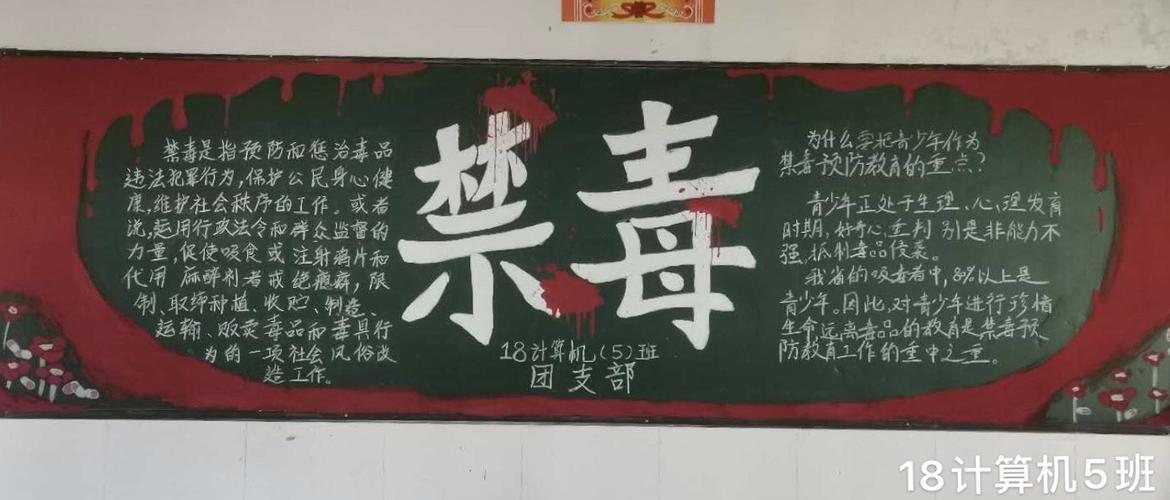 禁毒是指预防和惩治毒品
违法犯罪行为,保护公民身心健
康,维护社会秩序的工作。或者
说,运用行政法令和群众监督的
力量,促使吸食或注射鸦片和
代用麻醉剂者戒绝瘾癖,限
制、取缔种植、收贮、制造、
运输、贩卖毒品和毒具行
为的一项社会风俗改
造工作。
禁毒
18计算机(5)班
团支部
为什么要把青少年作为
禁毒预防教育的重点?
青少年正处于生理、心理发育
时期,好奇心重判别是非能力不
强,抵制毒品侵袭。
我省的吸毒者中,80%以上是
青少年。因此,对青少年进行珍惜
生命远离毒品的教育是禁毒预
防教育工作的重中之重。
18计算机5班